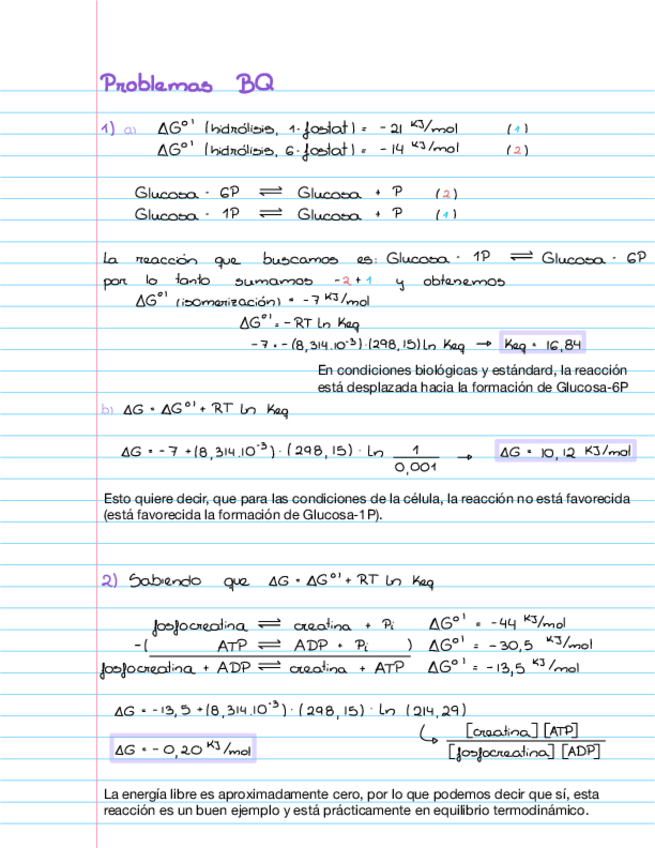 Problemas BQ
1) a) ΔG°' (hidrólisis, 1-fosfat) = -21 KJ/mol (1)
ΔG°' (hidrólisis, 6-fosfat) = -14 KJ/mol (2)
Glucosa - 6P ⇌ Glucosa + P (2)
Glucosa - 1P ⇌ Glucosa + P (1)
La reacción que buscamos es: Glucosa - 1P ⇌ Glucosa - 6P
por lo tanto sumamos -2+1 y obtenemos
ΔG°' (isomerización) = -7 KJ/mol
ΔG°' = -RT ln Keq
-7 = -(8,314·10⁻³)·(298,15) ln Keq → Keq = 16,84
En condiciones biológicas y estándard, la reacción
está desplazada hacia la formación de Glucosa-6P
b) ΔG = ΔG°' + RT ln Keq
ΔG = -7 + (8,314·10⁻³)·(298,15)·ln 1/0,001 → ΔG = 10,12 KJ/mol
Esto quiere decir, que para las condiciones de la célula, la reacción no está favorecida
(está favorecida la formación de Glucosa-1P).
2) Sabiendo que ΔG = ΔG°' + RT ln Keq
fosfocreatina ⇌ creatina + Pi ΔG°' = -44 KJ/mol
-( ATP ⇌ ADP + Pi ) ΔG°' = -30,5 KJ/mol
fosfocreatina + ADP ⇌ creatina + ATP ΔG°' = -13,5 KJ/mol
ΔG = -13,5 + (8,314·10⁻³)·(298,15)·ln (214,29)
[creatina][ATP]
ΔG = -0,20 KJ/mol
[fosfocreatina][ADP]
La energía libre es aproximadamente cero, por lo que podemos decir que sí, esta
reacción es un buen ejemplo y está prácticamente en equilibrio termodinámico.